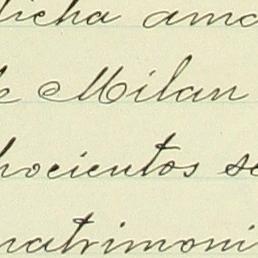 dicha ama
e Milan
hocientos se
natrimoni